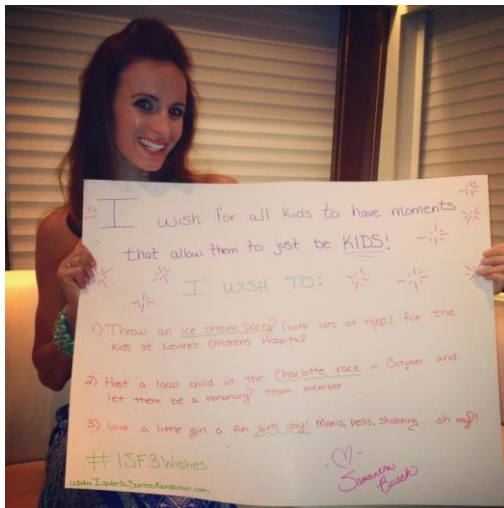 I wish for all kids to have moments
that allow them to just be KIDS!
I WISH TO:
1) Throw an ice cream party! (with lots of hugs) for the
kids at Levine's Childrens Hospital
2) Host a local child at the Charlotte race in October and
let them be a honorary team member
3) Give a little girl a fun girls day! Manis, pedis, shopping... oh my!
#ISF3Wishes
www.IsabellaSantosFoundation.com
Samantha
Busch